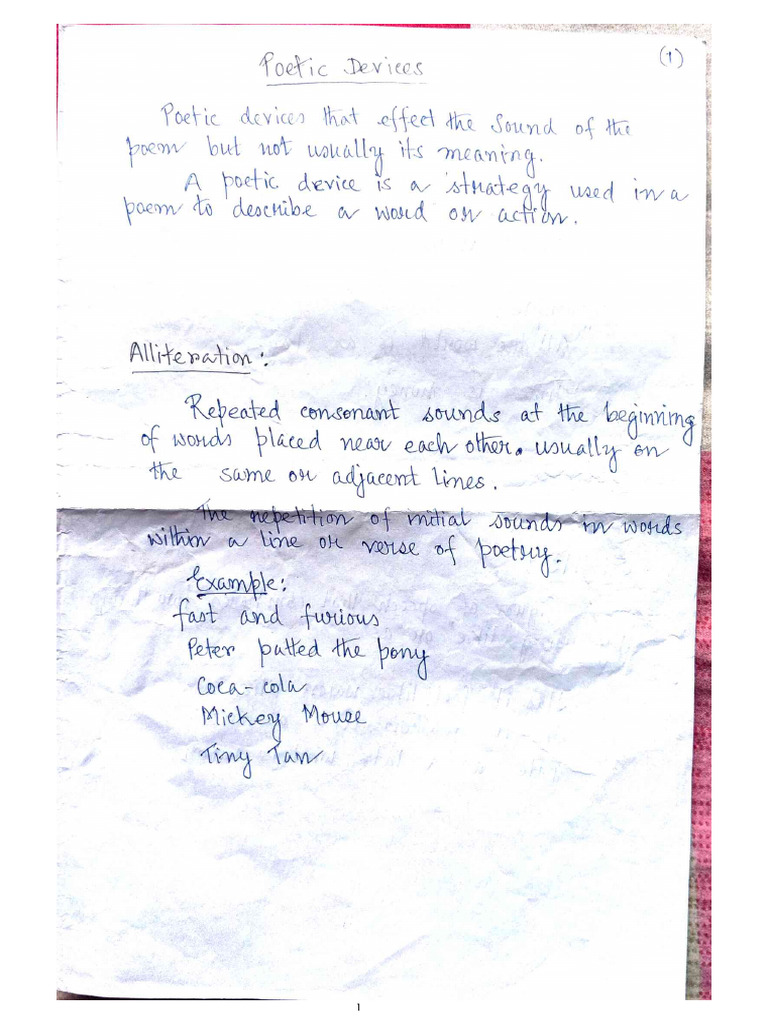 Poetic Devices
(1)
Poetic devices that effect the sound of the
poem but not usually its meaning.
A poetic device is a strategy used in a
poem to describe a word or action.
Alliteration:
Repeated consonant sounds at the beginning
of words placed near each other. usually on
the same or adjacent lines.
The repetition of initial sounds in words
within a line or verse of poetry.
Example:
fast and furious
Peter patted the pony
Coca-cola
Mickey Mouse
Tiny Tan
1